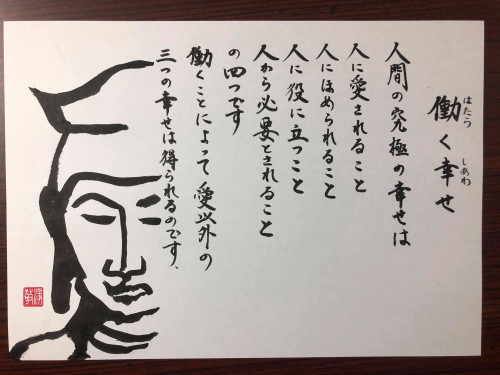 働く幸せ
はたら
しあわ
人間の究極の幸せは
人に愛されること
人にほめられること
人に役に立つこと
人から必要とされること
の四つです
働くことによって愛以外の
三つの幸せは得られるのです、